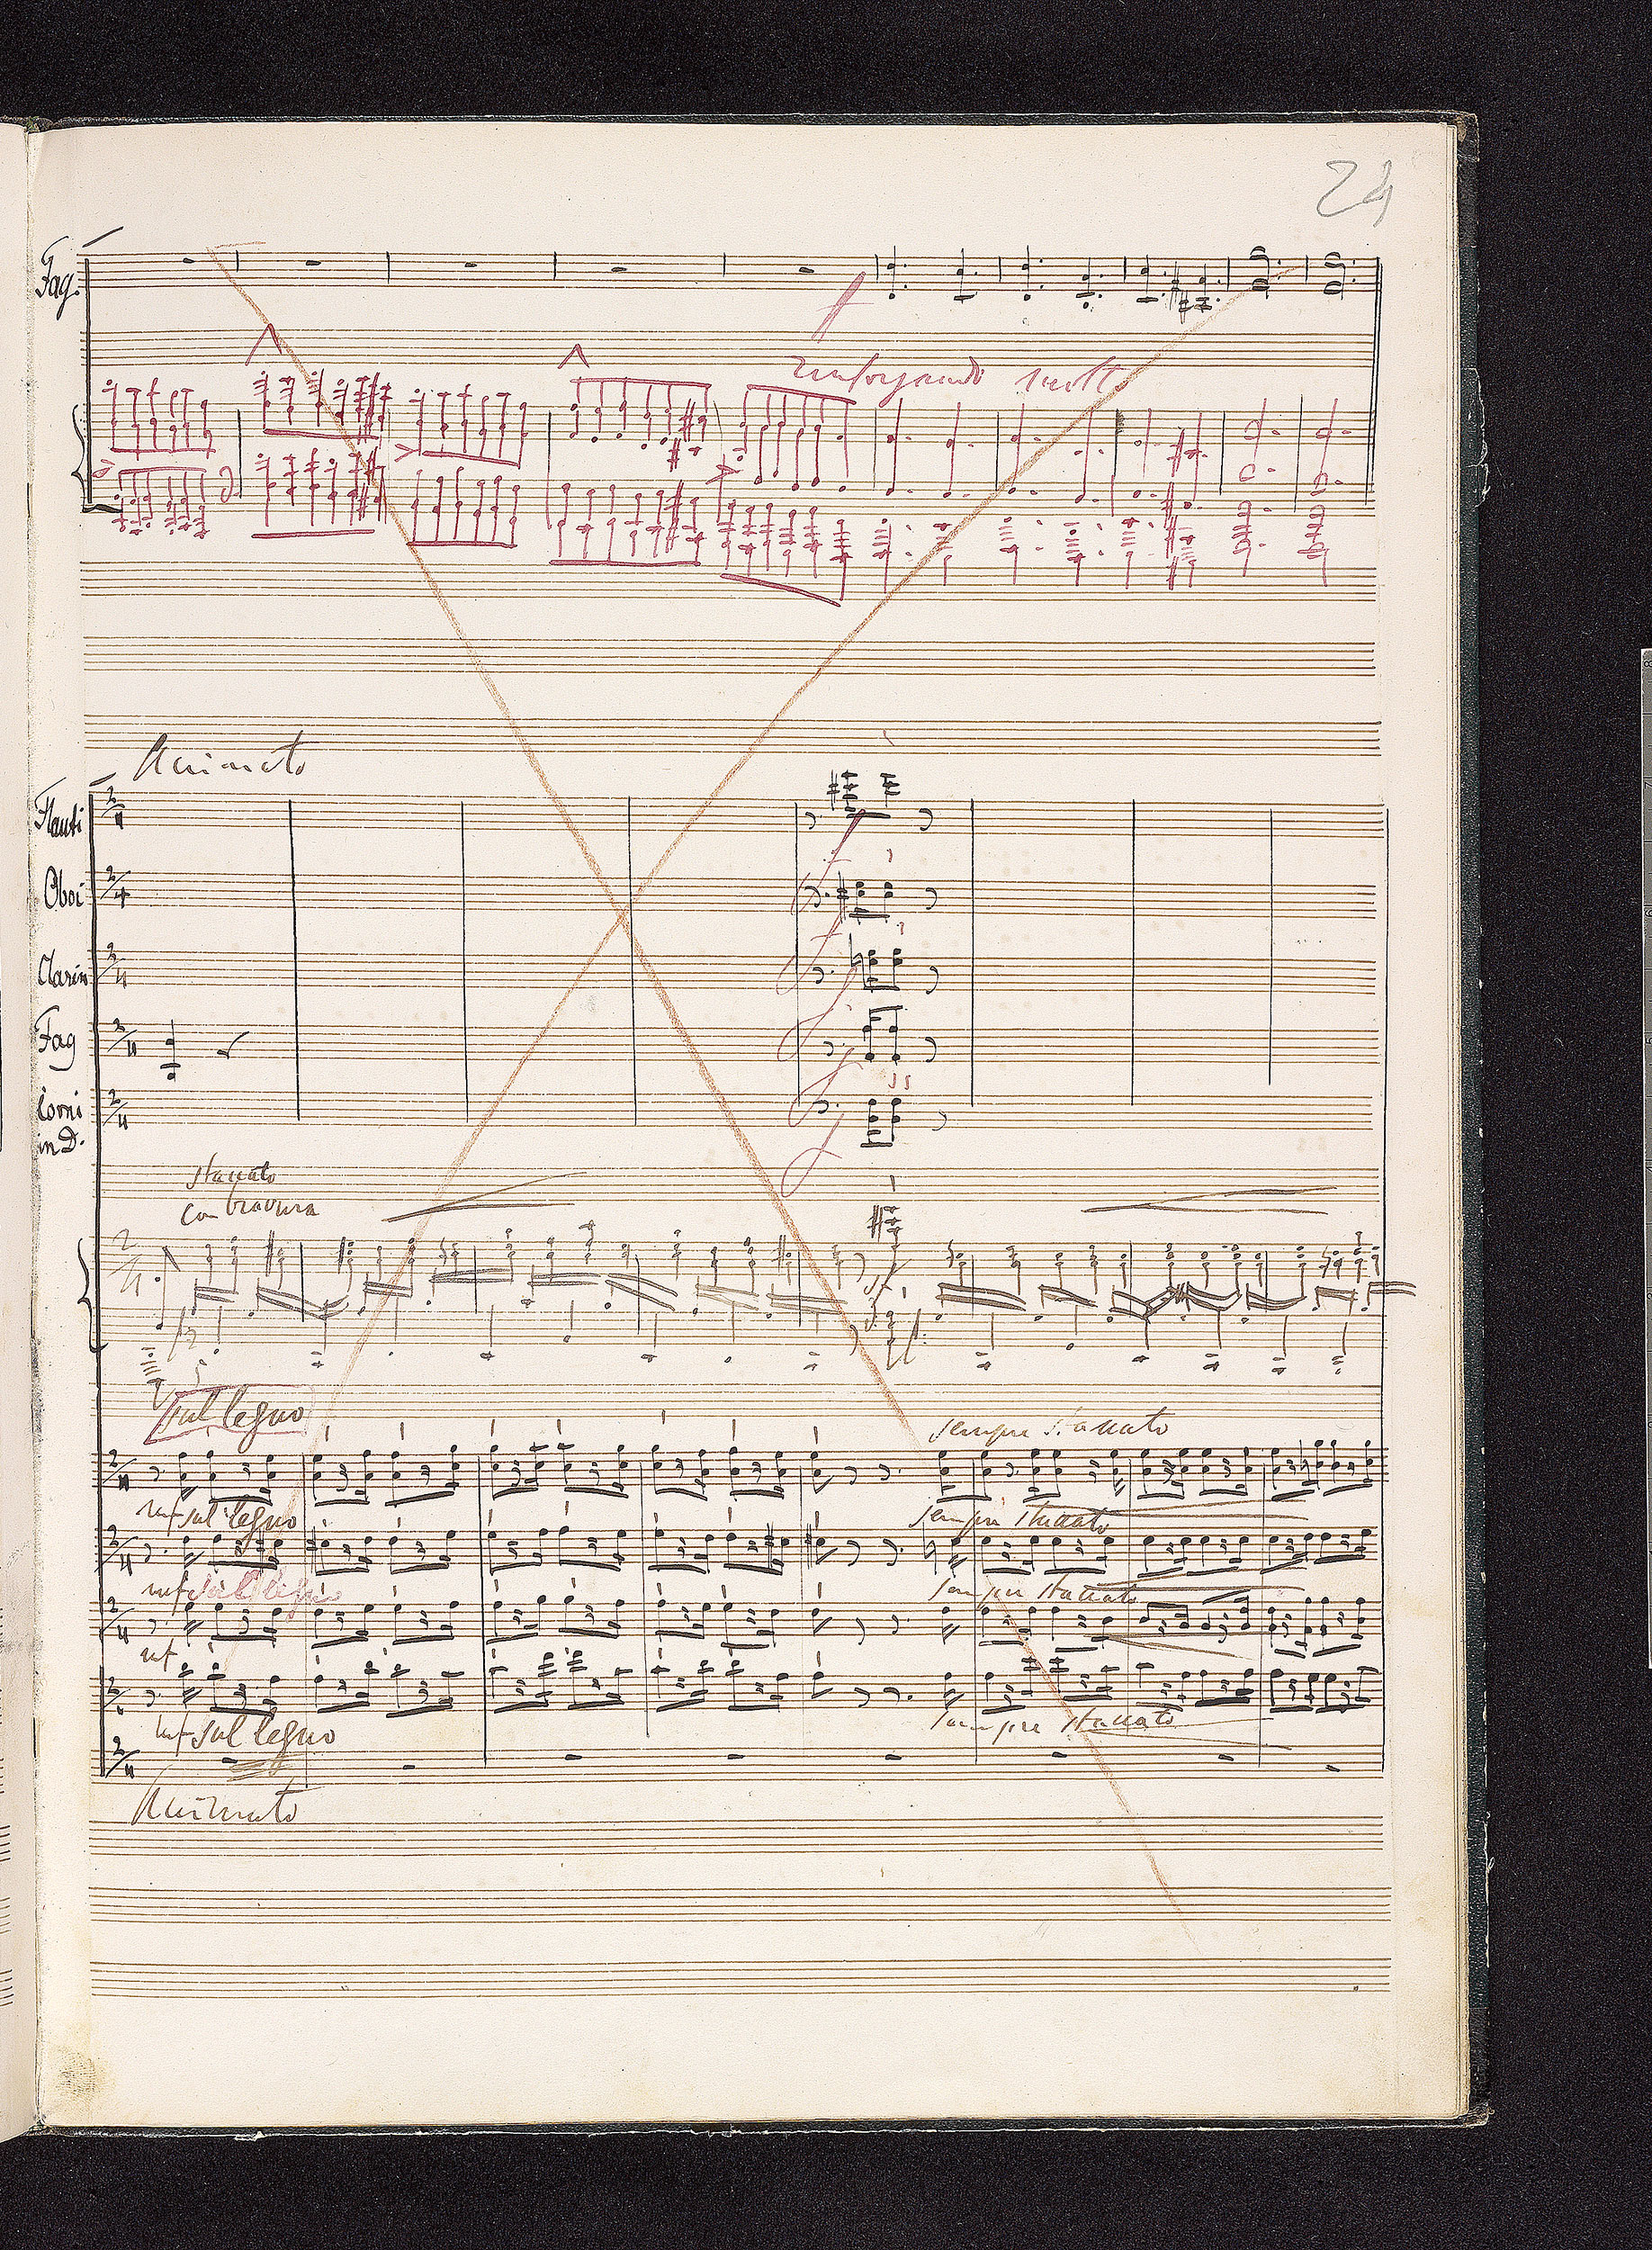 24
Fag.
f
rinforzando molto
Animato
Flauti
Oboi
Clarin
Fag
Corni
in D.
staccato
con bravura
sul legno
sempre staccato
mf sul legno
sempre staccato
mf sul legno
sempre staccato
mf
mf sul legno
sempre staccato
Animato